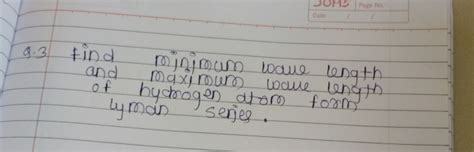 Page No.
Date / /
Q.3 find minimum wave length
and maximum wave length
of hydrogen atom form
lyman series.